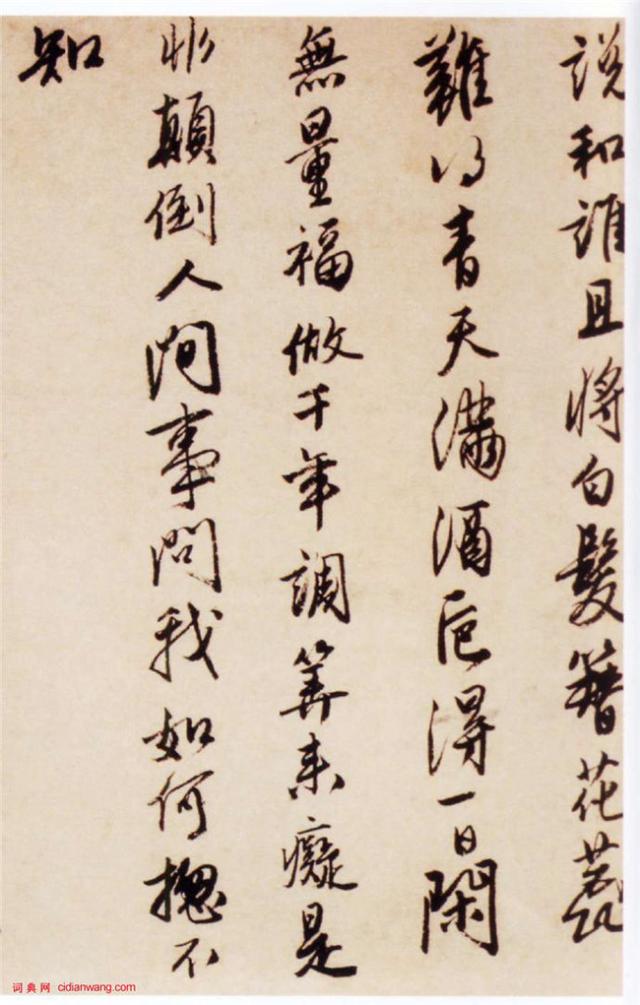 說和誰且將白髮簪花蕊
難得青天滿酒卮得一日閑
無量福做千年調筭來癡是
非顛倒人間事問我如何揔不
知
词典网 cidianwang.com